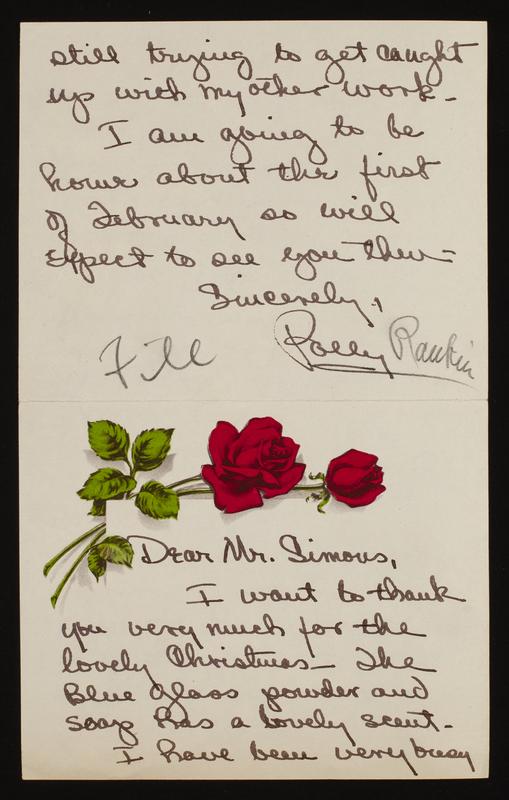 still trying to get caught
up with my other work -
I am going to be
home about the first
of February so will
expect to see you then -
Sincerely,
Polly Rankin
File
Dear Mr. Simons,
I want to thank
you very much for the
lovely Christmas - The
Blue Glass powder and
soap has a lovely scent -
I have been very busy